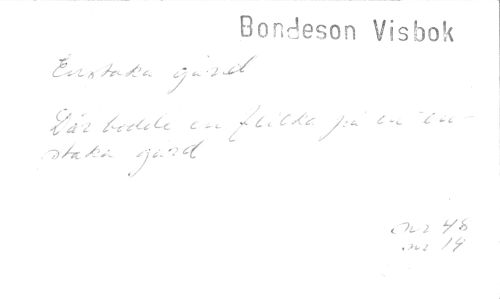 Bondeson Visbok
Enstaka gård
Där bodde en flicka på en en-
staka gård
nr 48
nr 19